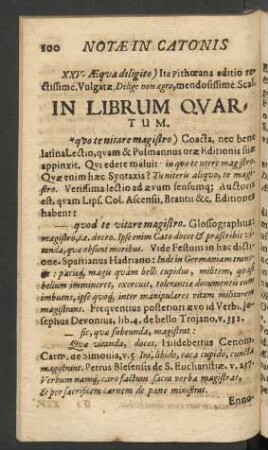 100 NOTÆ IN CATONIS
XXV. Æqua diligito) Ita Pithœana editio re-
ctissimè. Vulgatæ, Dilige non ægra, mendosissimè. Scal.
IN LIBRUM QVAR-
TUM.
quo te nitare magistro) Coacta, nec bene
latina Lectio, quam & Pulmannus oræ Editionis suæ
appinxit. Qvi edere maluit in quo te utere magistro.
Quæ enim hæc Syntaxis? Tu niteris aliquo, te magi-
stro. Verissima lectio ad ævum sensumq; Auctoris
est, qvam Lips. Col. Ascensii, Brantii &c. Editiones
habent:
— quod te vitare magistro. Glossographus:
magistro, i.e. doceo. Ipse enim Cato docet & præscribit vi-
tanda, quæ obsunt moribus. Vide Festum in hac dicti-
one. Spartianus Hadriano: Inde in Germaniam trans-
it: pacisq́, magis quàm belli cupidus, militem, quasi
bellum immineret, exercuit, tolerantiæ documentis eum
imbuens, ipse quoq́, inter manipulares vitam militarem
magistrans. Freqventius posteriori ævo id Verbi. Jo-
sephus Devonius, lib. 4. de bello Trojano, v. 331.
— sic, quæ subeunda, magistrat:
— Quæ vitanda, docet. Hildebertus Cenom.
Carm. de Simonia, v. 5 Ito, libido, tace, cupido, cuncta
magistrant. Petrus Blesensis de S. Eucharistiæ, v. 237.
Verbum namq́, caro factum sacra verba magistrat,
& per sacrificium carnem de pane ministrat.
Enno-